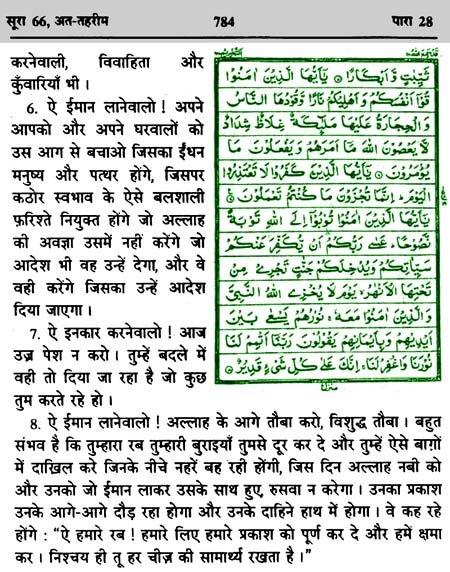 सूरा 66, अत-तहरीम 784 पारा 28
करनेवाली, विवाहिता और
कुँवारियाँ भी ।
6. ऐ ईमान लानेवालो ! अपने
आपको और अपने घरवालों को
उस आग से बचाओ जिसका ईंधन
मनुष्य और पत्थर होंगे, जिसपर
कठोर स्वभाव के ऐसे बलशाली
फ़रिश्ते नियुक्त होंगे जो अल्लाह
की अवज्ञा उसमें नहीं करेंगे जो
आदेश भी वह उन्हें देगा, और वे
वही करेंगे जिसका उन्हें आदेश
दिया जाएगा ।
7. ऐ इनकार करनेवालो ! आज
उज़्र पेश न करो । तुम्हें बदले में
वही तो दिया जा रहा है जो कुछ
तुम करते रहे हो ।
ثَيِّبٰتٍ وَّاَبْكَارًا ۝ يٰۤاَيُّهَا الَّذِيْنَ اٰمَنُوْا
قُوْۤا اَنْفُسَكُمْ وَاَهْلِيْكُمْ نَارًا وَّقُوْدُهَا النَّاسُ
وَالْحِجَارَةُ عَلَيْهَا مَلٰٓئِكَةٌ غِلَاظٌ شِدَادٌ
لَّا يَعْصُوْنَ اللّٰهَ مَاۤ اَمَرَهُمْ وَيَفْعَلُوْنَ مَا
يُؤْمَرُوْنَ ۝ يٰۤاَيُّهَا الَّذِيْنَ كَفَرُوْا لَا تَعْتَذِرُوا
الْيَوْمَ ؕ اِنَّمَا تُجْزَوْنَ مَا كُنْتُمْ تَعْمَلُوْنَ ۝
يٰۤاَيُّهَا الَّذِيْنَ اٰمَنُوْا تُوْبُوْۤا اِلَى اللّٰهِ تَوْبَةً
نَّصُوْحًا ؕ عَسٰى رَبُّكُمْ اَنْ يُّكَفِّرَ عَنْكُمْ
سَيِّاٰتِكُمْ وَيُدْخِلَكُمْ جَنّٰتٍ تَجْرِيْ مِنْ
تَحْتِهَا الْاَنْهٰرُ ۙ يَوْمَ لَا يُخْزِي اللّٰهُ النَّبِيَّ
وَالَّذِيْنَ اٰمَنُوْا مَعَهٗ ۚ نُوْرُهُمْ يَسْعٰى بَيْنَ
اَيْدِيْهِمْ وَبِاَيْمَانِهِمْ يَقُوْلُوْنَ رَبَّنَاۤ اَتْمِمْ لَنَا
نُوْرَنَا وَاغْفِرْ لَنَا ۚ اِنَّكَ عَلٰى كُلِّ شَيْءٍ قَدِيْرٌ ۝
8. ऐ ईमान लानेवालो ! अल्लाह के आगे तौबा करो, विशुद्ध तौबा । बहुत
संभव है कि तुम्हारा रब तुम्हारी बुराइयाँ तुमसे दूर कर दे और तुम्हें ऐसे बाग़ों
में दाख़िल करे जिनके नीचे नहरें बह रही होंगी, जिस दिन अल्लाह नबी को
और उनको जो ईमान लाकर उसके साथ हुए, रुसवा न करेगा । उनका प्रकाश
उनके आगे-आगे दौड़ रहा होगा और उनके दाहिने हाथ में होगा । वे कह रहे
होंगे : “ऐ हमारे रब ! हमारे लिए हमारे प्रकाश को पूर्ण कर दे और हमें क्षमा
कर । निश्चय ही तू हर चीज़ की सामार्थ्य रखता है ।”